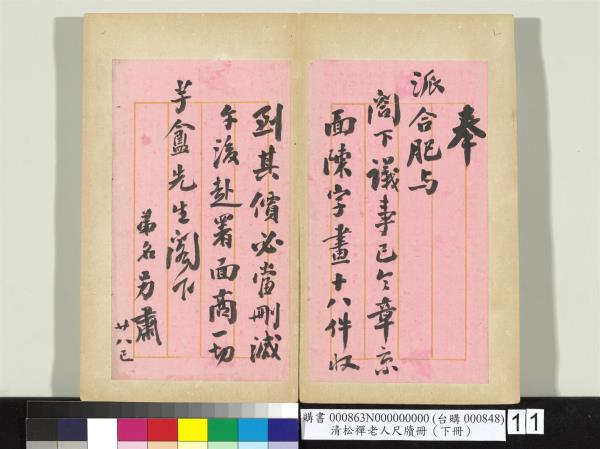 奉
派合肥与
閣下議事已令章京
面陳字畫十八件收
到其價必當刪減
午後赴署面商一切
芋盦先生閣下
弟名另肅
廿八巳
購書 000863N000000000 (台購 000848)
清松禪老人尺牘冊（下冊）
11